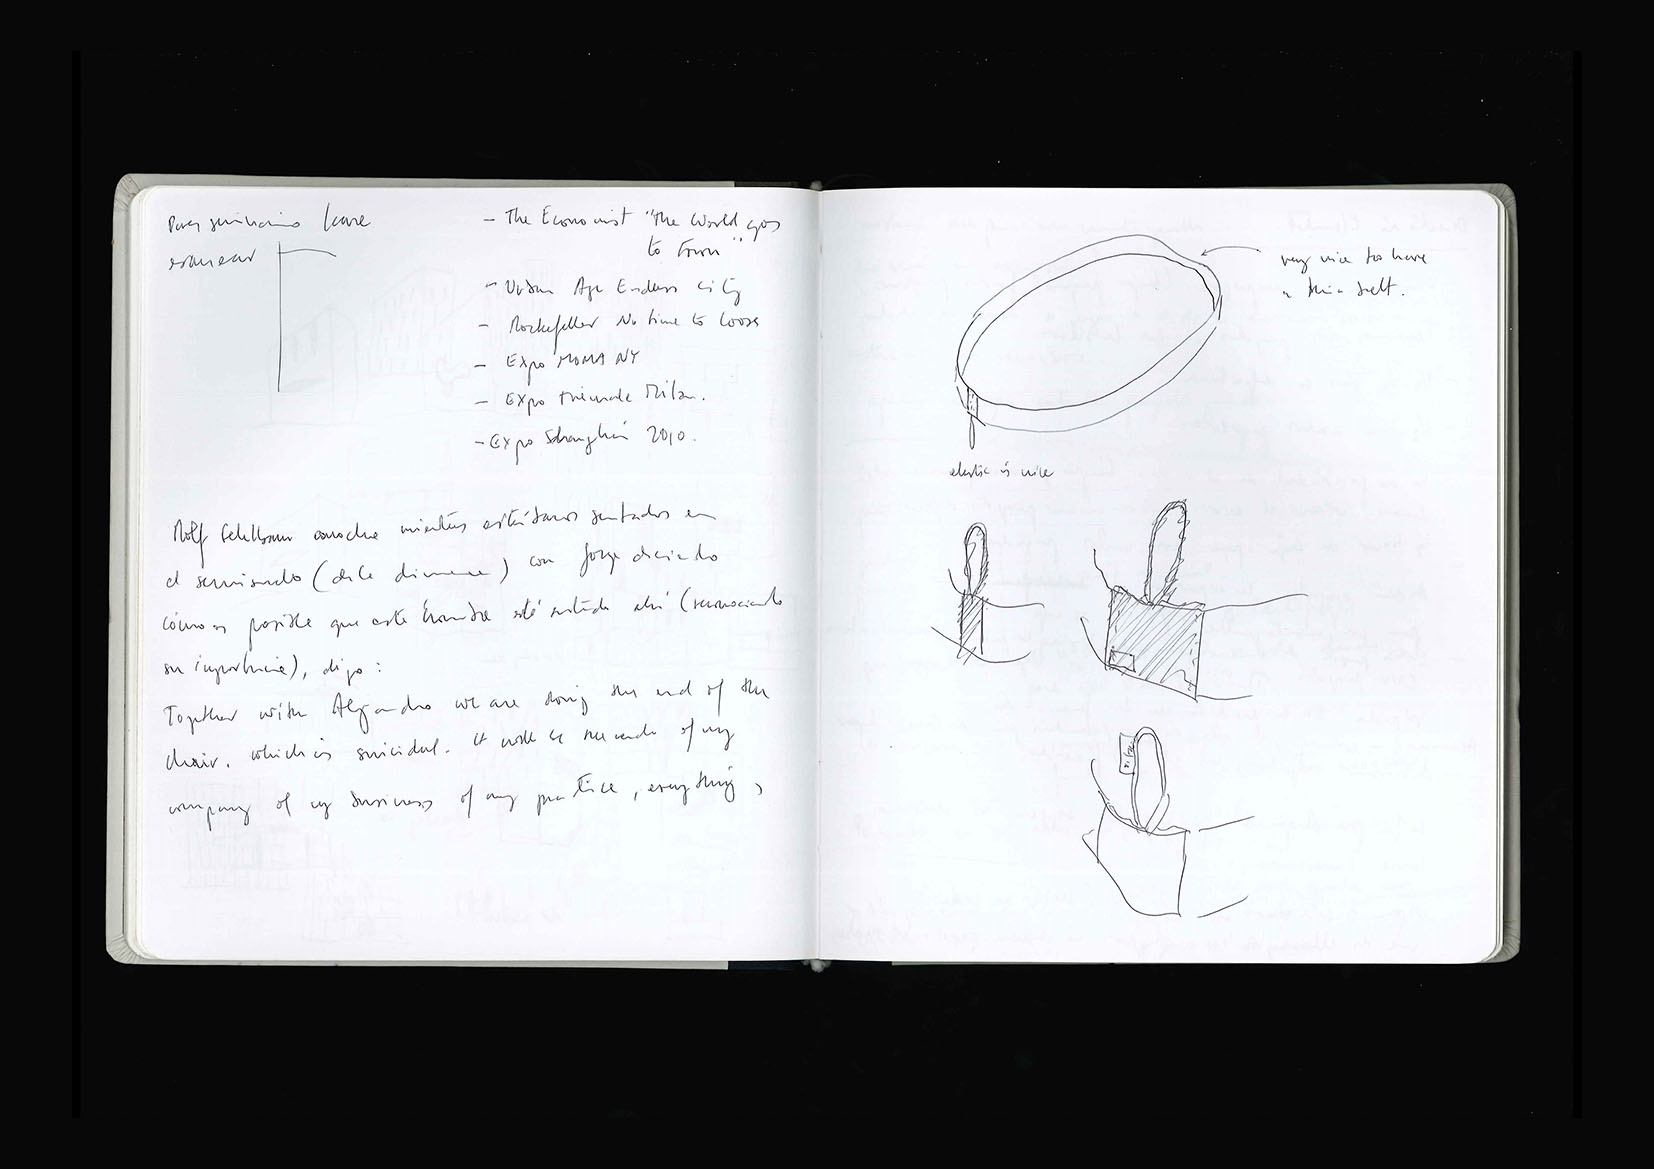 Para seminario
escanear
- The Economist "The World goes
to Town"
- Urban Age Endless City
- Rockefeller No time to Loose
- Expo MOMA NY
- Expo Trienale Milan.
- Expo Shanghai 2010.
Rolf anoche mientras estábamos sentados en
el seminario ( ) con Jorge diciendo
cómo es posible que este hombre esté sentado ahí (reconociendo
su importancia), dijo:
Together with Alejandro we are doing the end of the
chair. which is suicidal. It will be the end of my
company of my business of my practice, everything,
very nice to have
a thin belt.
elastic is nice